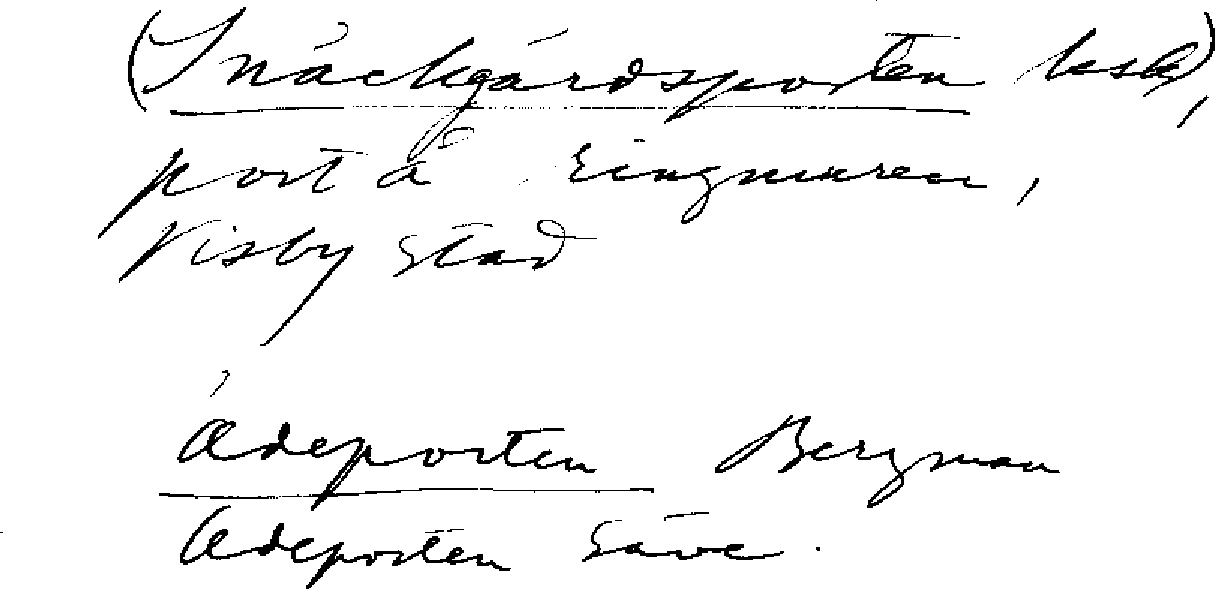 (Snäckgärdsporten
port å ringmuren,
Visby stad
Ädeporten Bergman
Adeporten Säve.